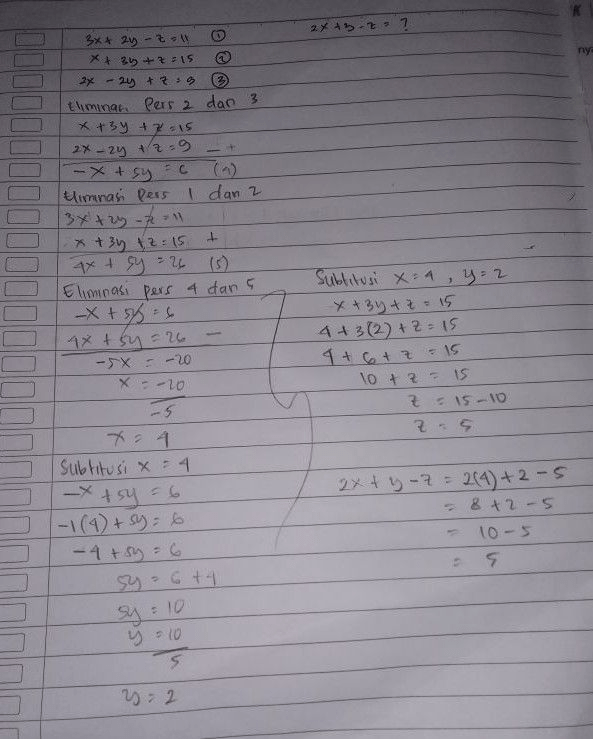 3x + 2y - z = 11 ①
2x + y - z = ?
x + 3y + z = 15 ②
2x - 2y + z = 9 ③
Eliminasi Pers 2 dan 3
x + 3y + z = 15
2x - 2y + z = 9 -
-x + 5y = 6 (4)
Eliminasi Pers 1 dan 2
3x + 2y - z = 11
x + 3y + z = 15 +
4x + 5y = 26 (5)
Eliminasi pers 4 dan 5
-x + 5y = 6
4x + 5y = 26 -
-5x = -20
x = -20
-5
x = 4
Subtitusi x = 4
-x + 5y = 6
-1(4) + 5y = 6
-4 + 5y = 6
5y = 6 + 4
5y = 10
y = 10
5
y = 2
Subtitusi x = 4, y = 2
x + 3y + z = 15
4 + 3(2) + z = 15
4 + 6 + z = 15
10 + z = 15
z = 15 - 10
z = 5
2x + y - z = 2(4) + 2 - 5
= 8 + 2 - 5
= 10 - 5
= 5